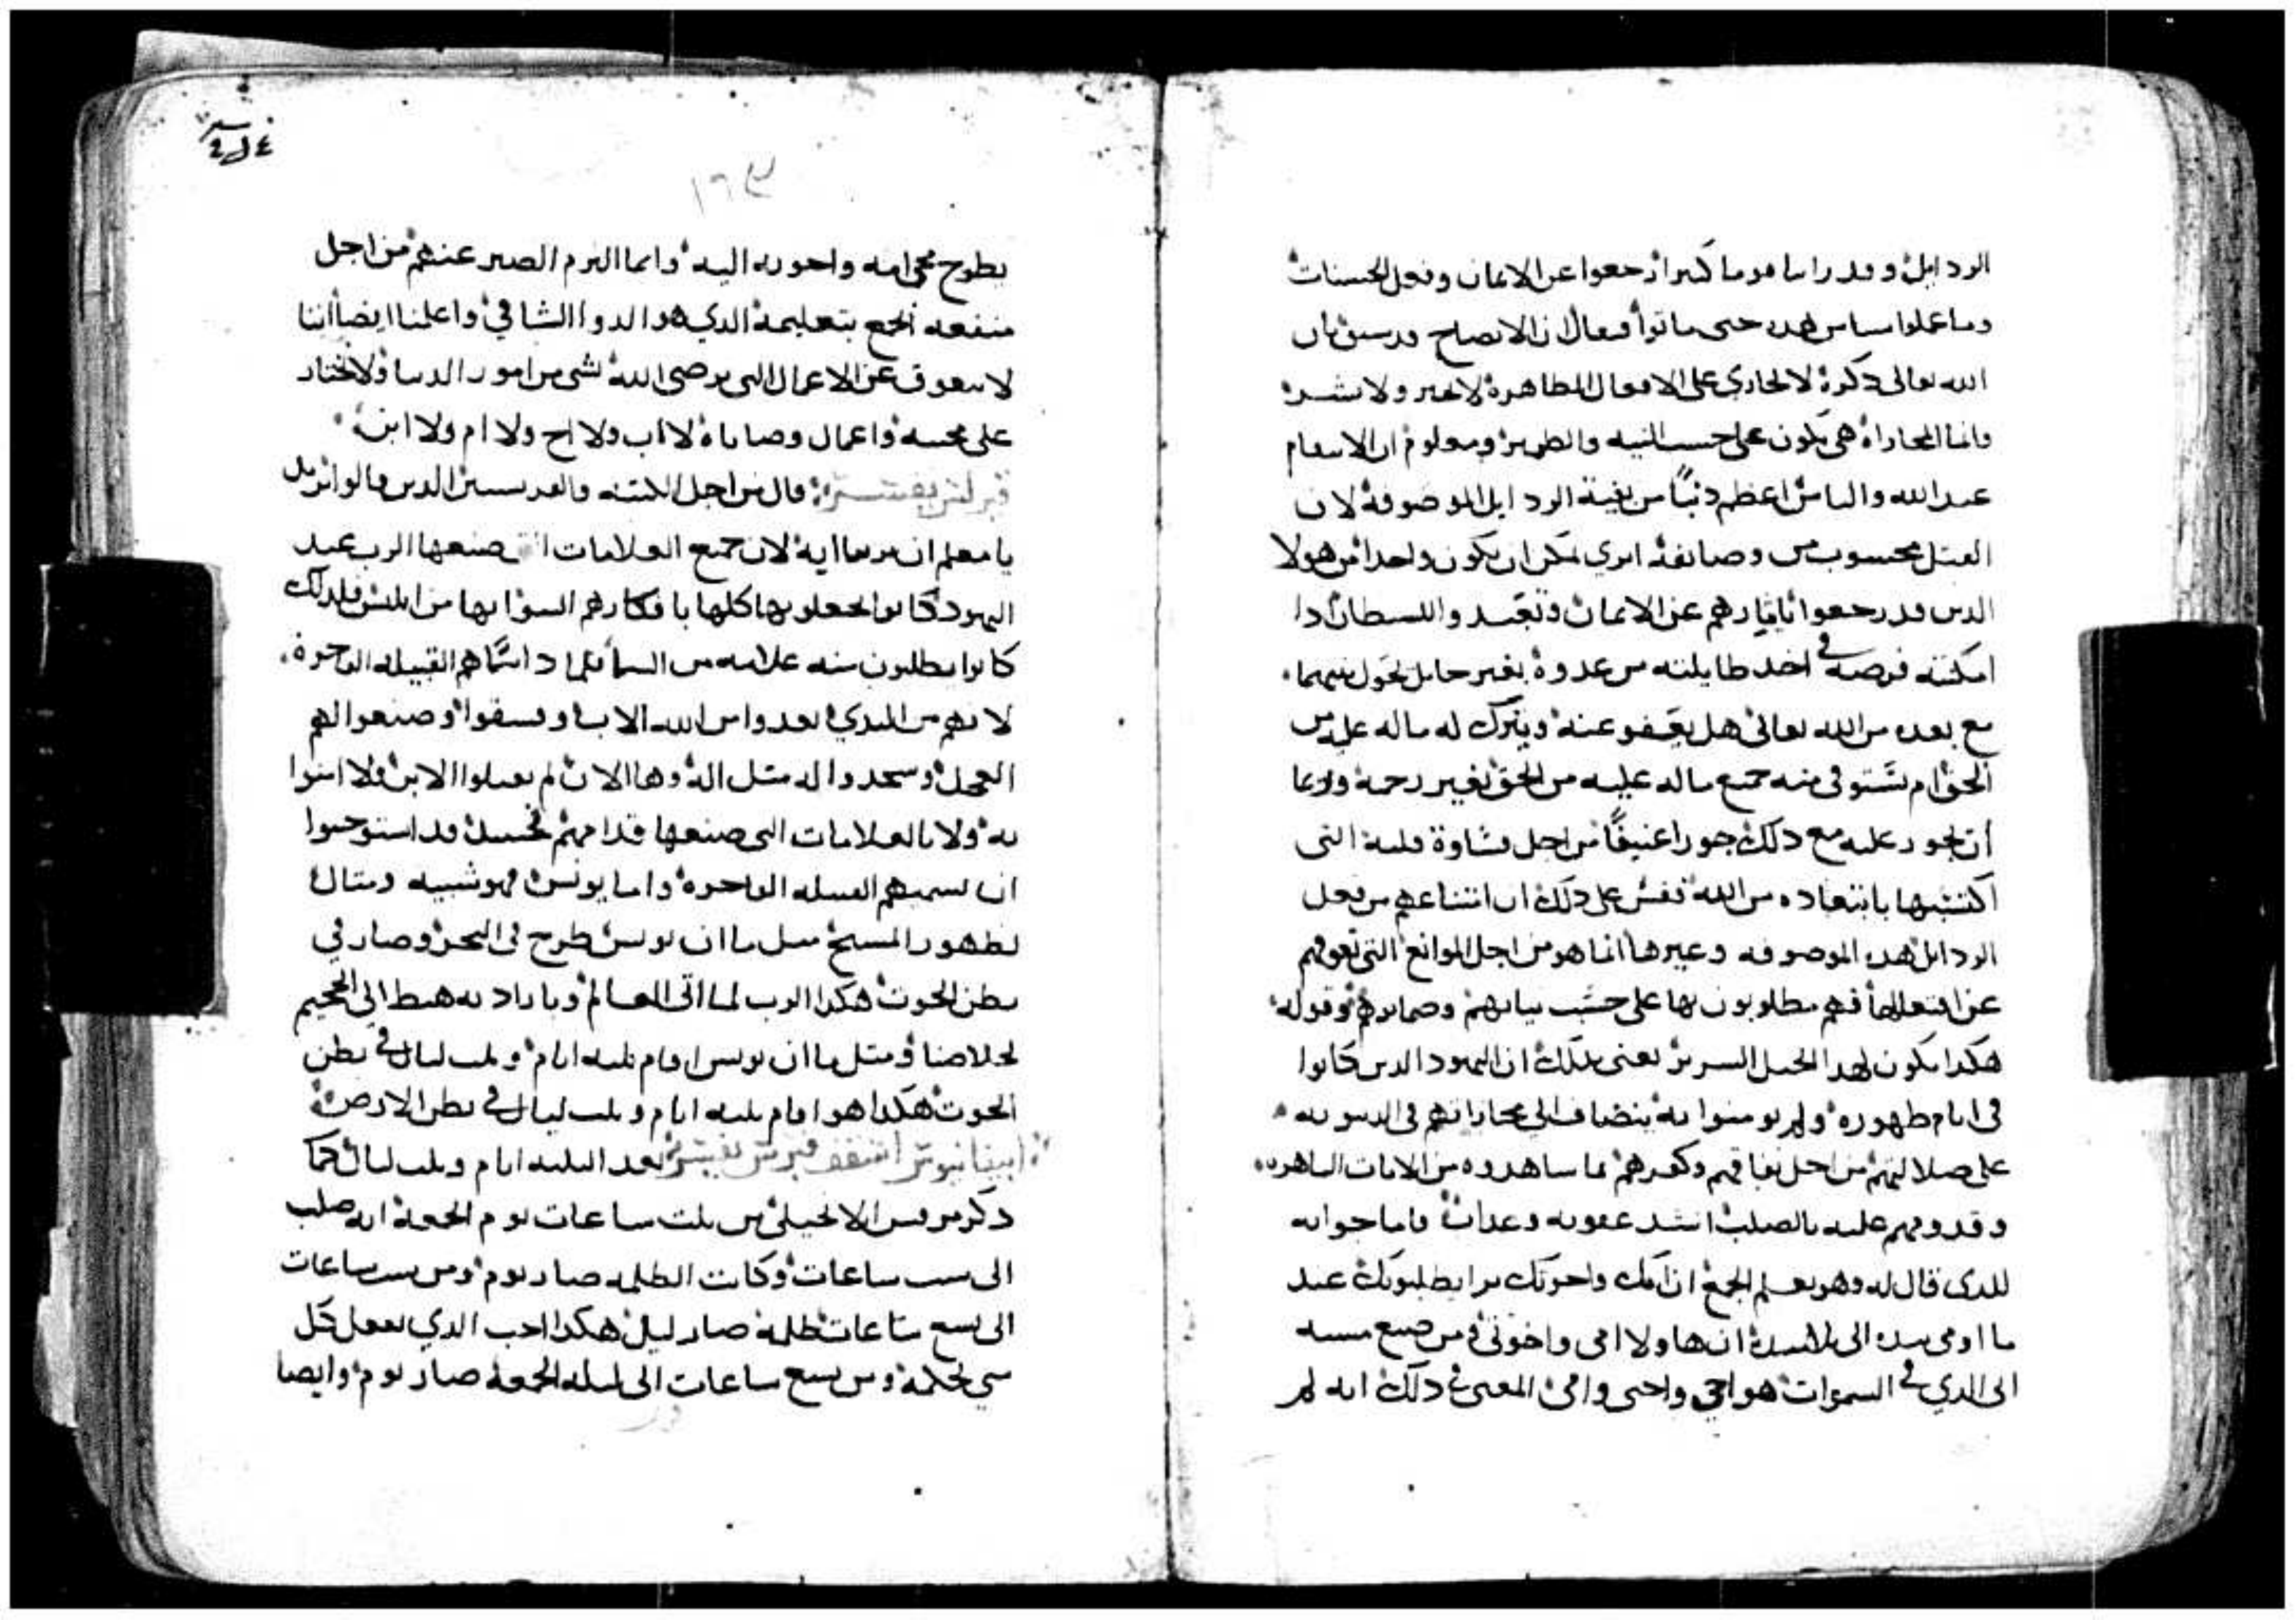 الردايل وقد راينا قوما كثيرا رجعوا عن الايمان وفعل الحسنات
وما عملوا شيا من هده حتى ماتوا فيقال ان الايضاح قد سبق بان
الله تعالى دكره لا يجازي على الافعال الظاهرة لا بخير ولا بشر
وانما المجازاه هي تكون على حسب النيه والضمير ومعلوم ان الانبعام
عند الله والناس اعظم دنبًا من بقية الردايل الموصوفة لان
القتل محسوب من وصائفه اتري يمكن ان يكون واحدا من هولا
الدين قد رجعوا باختيارهم عن الايمان وتعبدوا للشيطان ادا
امكنته فرصه في اخد طايلته من عدوة بغير حايل يحول بينهما
مع بعده من الله تعالى هل يعفو عنه ويترك له ماله عليه من
الحق ام يستوفى منه جميع ماله عليه من الحق بغير رحمة وربما
ان يجور عليه مع دلك جورا عنيفًا من اجل قساوة قلبه التى
اكتسبها بابتعاده من الله فقس على دلك ان امتناعهم من فعل
الردايل هده الموصوفه وغيرها انما هو من اجل الموانع التى تعوقهم
عن افتعالها فهم مطلوبون بها على حسب نياتهم وضمايرهم وقوله
هكدا يكون لهدا الجيل الشرير يعنى بدلك ان اليهود الدين كانوا
فى ايام ظهوره ولم يومنوا به ينضاف الى مجازاتهم فى الدينونه
على ضلالتهم من اجل نفاقهم وكفرهم بما شاهدوه من الايات الباهره
وقدومهم عليه بالصلب اشد عقوبه وعداب فاما جوابه
للدى قال له وهو يعلم الجمع ان امك واخوتك برا يطلبونك عند
ما اومى بيده الى تلاميده ان هاولا امى واخوتى ومن صنع مسيه
ابى الدي في السموات هو اخي واختى وامى المعنى في دلك انه لم
١٦٣
يطرح محبة امه واخوته اليه وانما التزم الصبر عنهم من اجل
منفعه الجمع بتعليمه الدي هو الدوا الشافي واعلمنا ايضا اننا
لا نتعوق عن الاعمال التى ترضى الله لشى من امور الدنيا ولا نختار
على محبته واعمال وصاياه لا اب ولا اخ ولا ام ولا ابن
قيرلس يفسر قال من اجل الكتبه والفريسيين الدين قالوا نريد
يا معلم ان ترينا اية لان جميع العلامات التى صنعها الرب عند
اليهود كانوا يجعلونها كلها بافكارهم السوء انها من ابليس فلدلك
كانوا يطلبون منه علامه من السما فلما دا سماهم القبيله الفاجرة
لانهم من البدي بعدوا من الله الاب وفسقوا وصنعوا لهم
العجل وسجدوا له متل اله وها الان لم يقبلوا الابن ولا امنوا
به ولا بالعلامات التى صنعها قدامهم فحسن قد استوجبوا
ان يسميهم القبيله الفاجره واما يونس فهو شبيه ومتال
لظهور المسيح متل ما ان يونس طرح فى البحر وصار في
بطن الحوت هكدا الرب لما اتى للعالم وباراد ته هبط الى الجحيم
لخلاصنا ومتل ما ان يونس اقام تلته ايام وتلت ليال في بطن
الحوت هكدا هو اقام تلته ايام وتلت ليال في بطن الارض
ابيفانيوس اسقف قبرس يفسر بعد التلته ايام وتلت ليال كما
دكر مرقس الانجيلى من تلت ساعات يوم الجمعة انه صلب
الى ست ساعات وكانت الظلمه صار يوم ومن ست ساعات
الى تسع ساعات ظلمة صار ليل هكدا احب الدي يفعل كل
شي بحكمة ومن تسع ساعات الى ليله الجمعه صار يوم وايضا